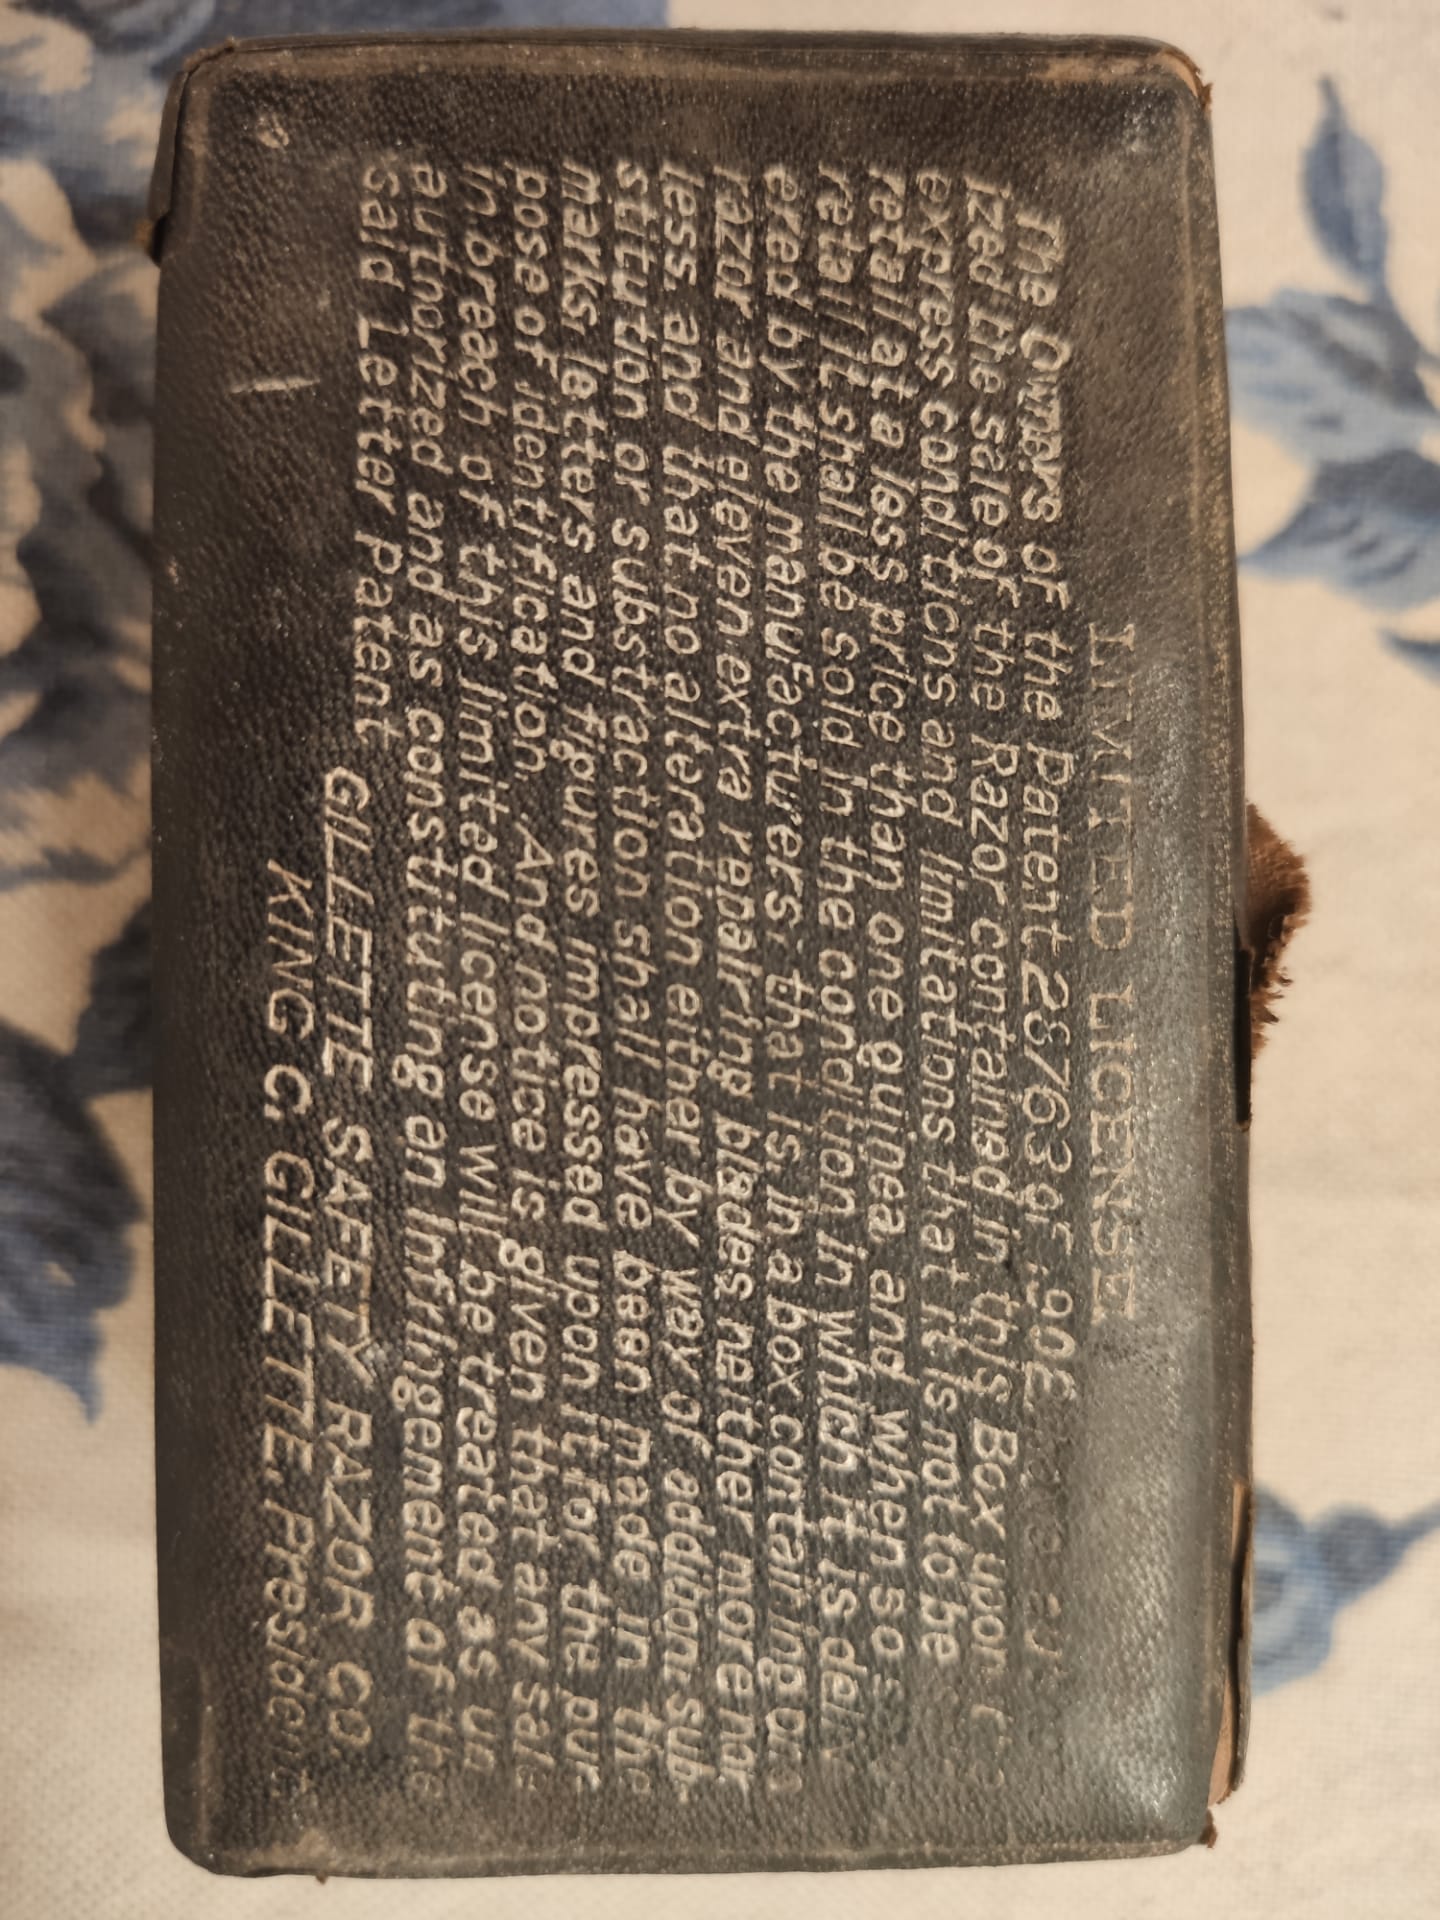 LIMITED LICENSE
The Owners of the Patent 28763 of
ized the sale of the Razor contained in this Box upon
express conditions and limitations that it is not to be
retail at a less price than one guinea and when so
retail it shall be sold in the condition in which it is del
ered by the manufacturers, that is, in a box containing one
razor and eleven extra repairing blades neither more nor
less, and that no alteration either by way of addition, sub-
stitution or substraction shall have been made in the
marks, letters and figures impressed upon it for the pur-
pose of identification. And notice is given that any sale
in breach of this limited license will be treated as un
authorized and as constituting an infringement of the
said Letter Patent
GILLETTE SAFETY RAZOR CO.
KING C. GILLETTE, President.